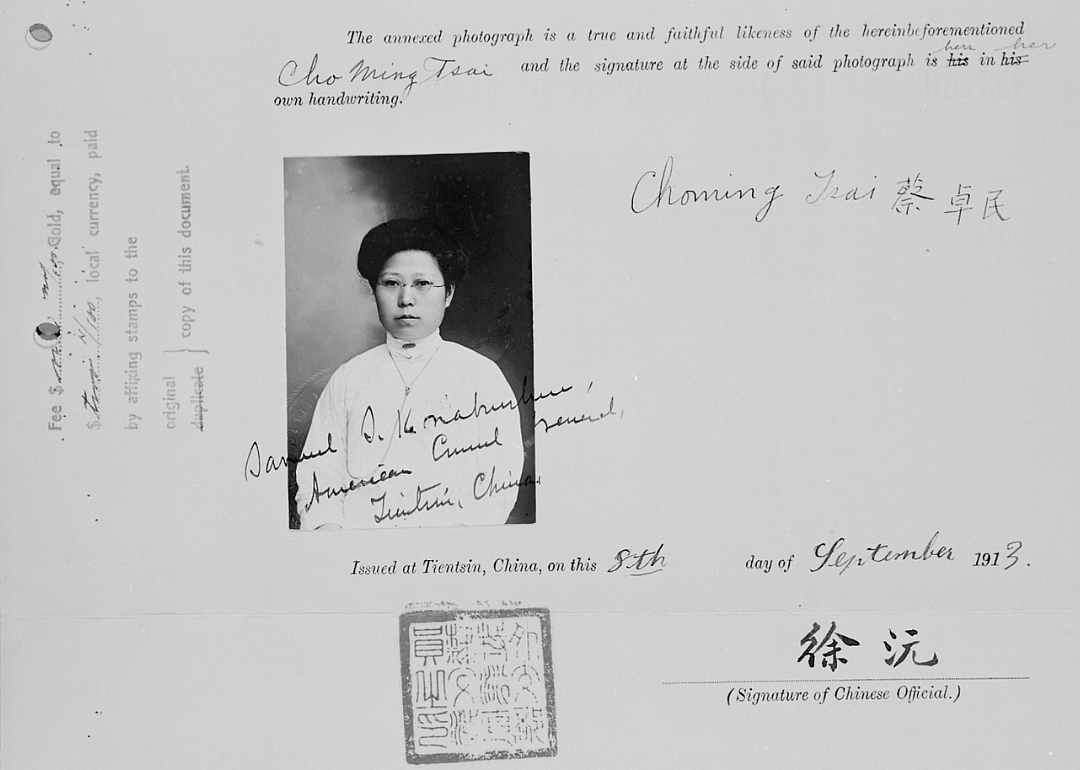 The annexed photograph is a true and faithful likeness of the hereinbeforementioned
Cho Ming Tsai and the signature at the side of said photograph is his hers in his her
own handwriting.
Choming Tsai 蔡卓民
Samuel S. Knabenshue,
American Consul General,
Tientsin, China.
Issued at Tientsin, China, on this 8th day of September 1913.
徐沅
(Signature of Chinese Official.)
Fee $ Gold, equal to
$ local currency, paid
by affixing stamps to the
original
duplicate } copy of this document.